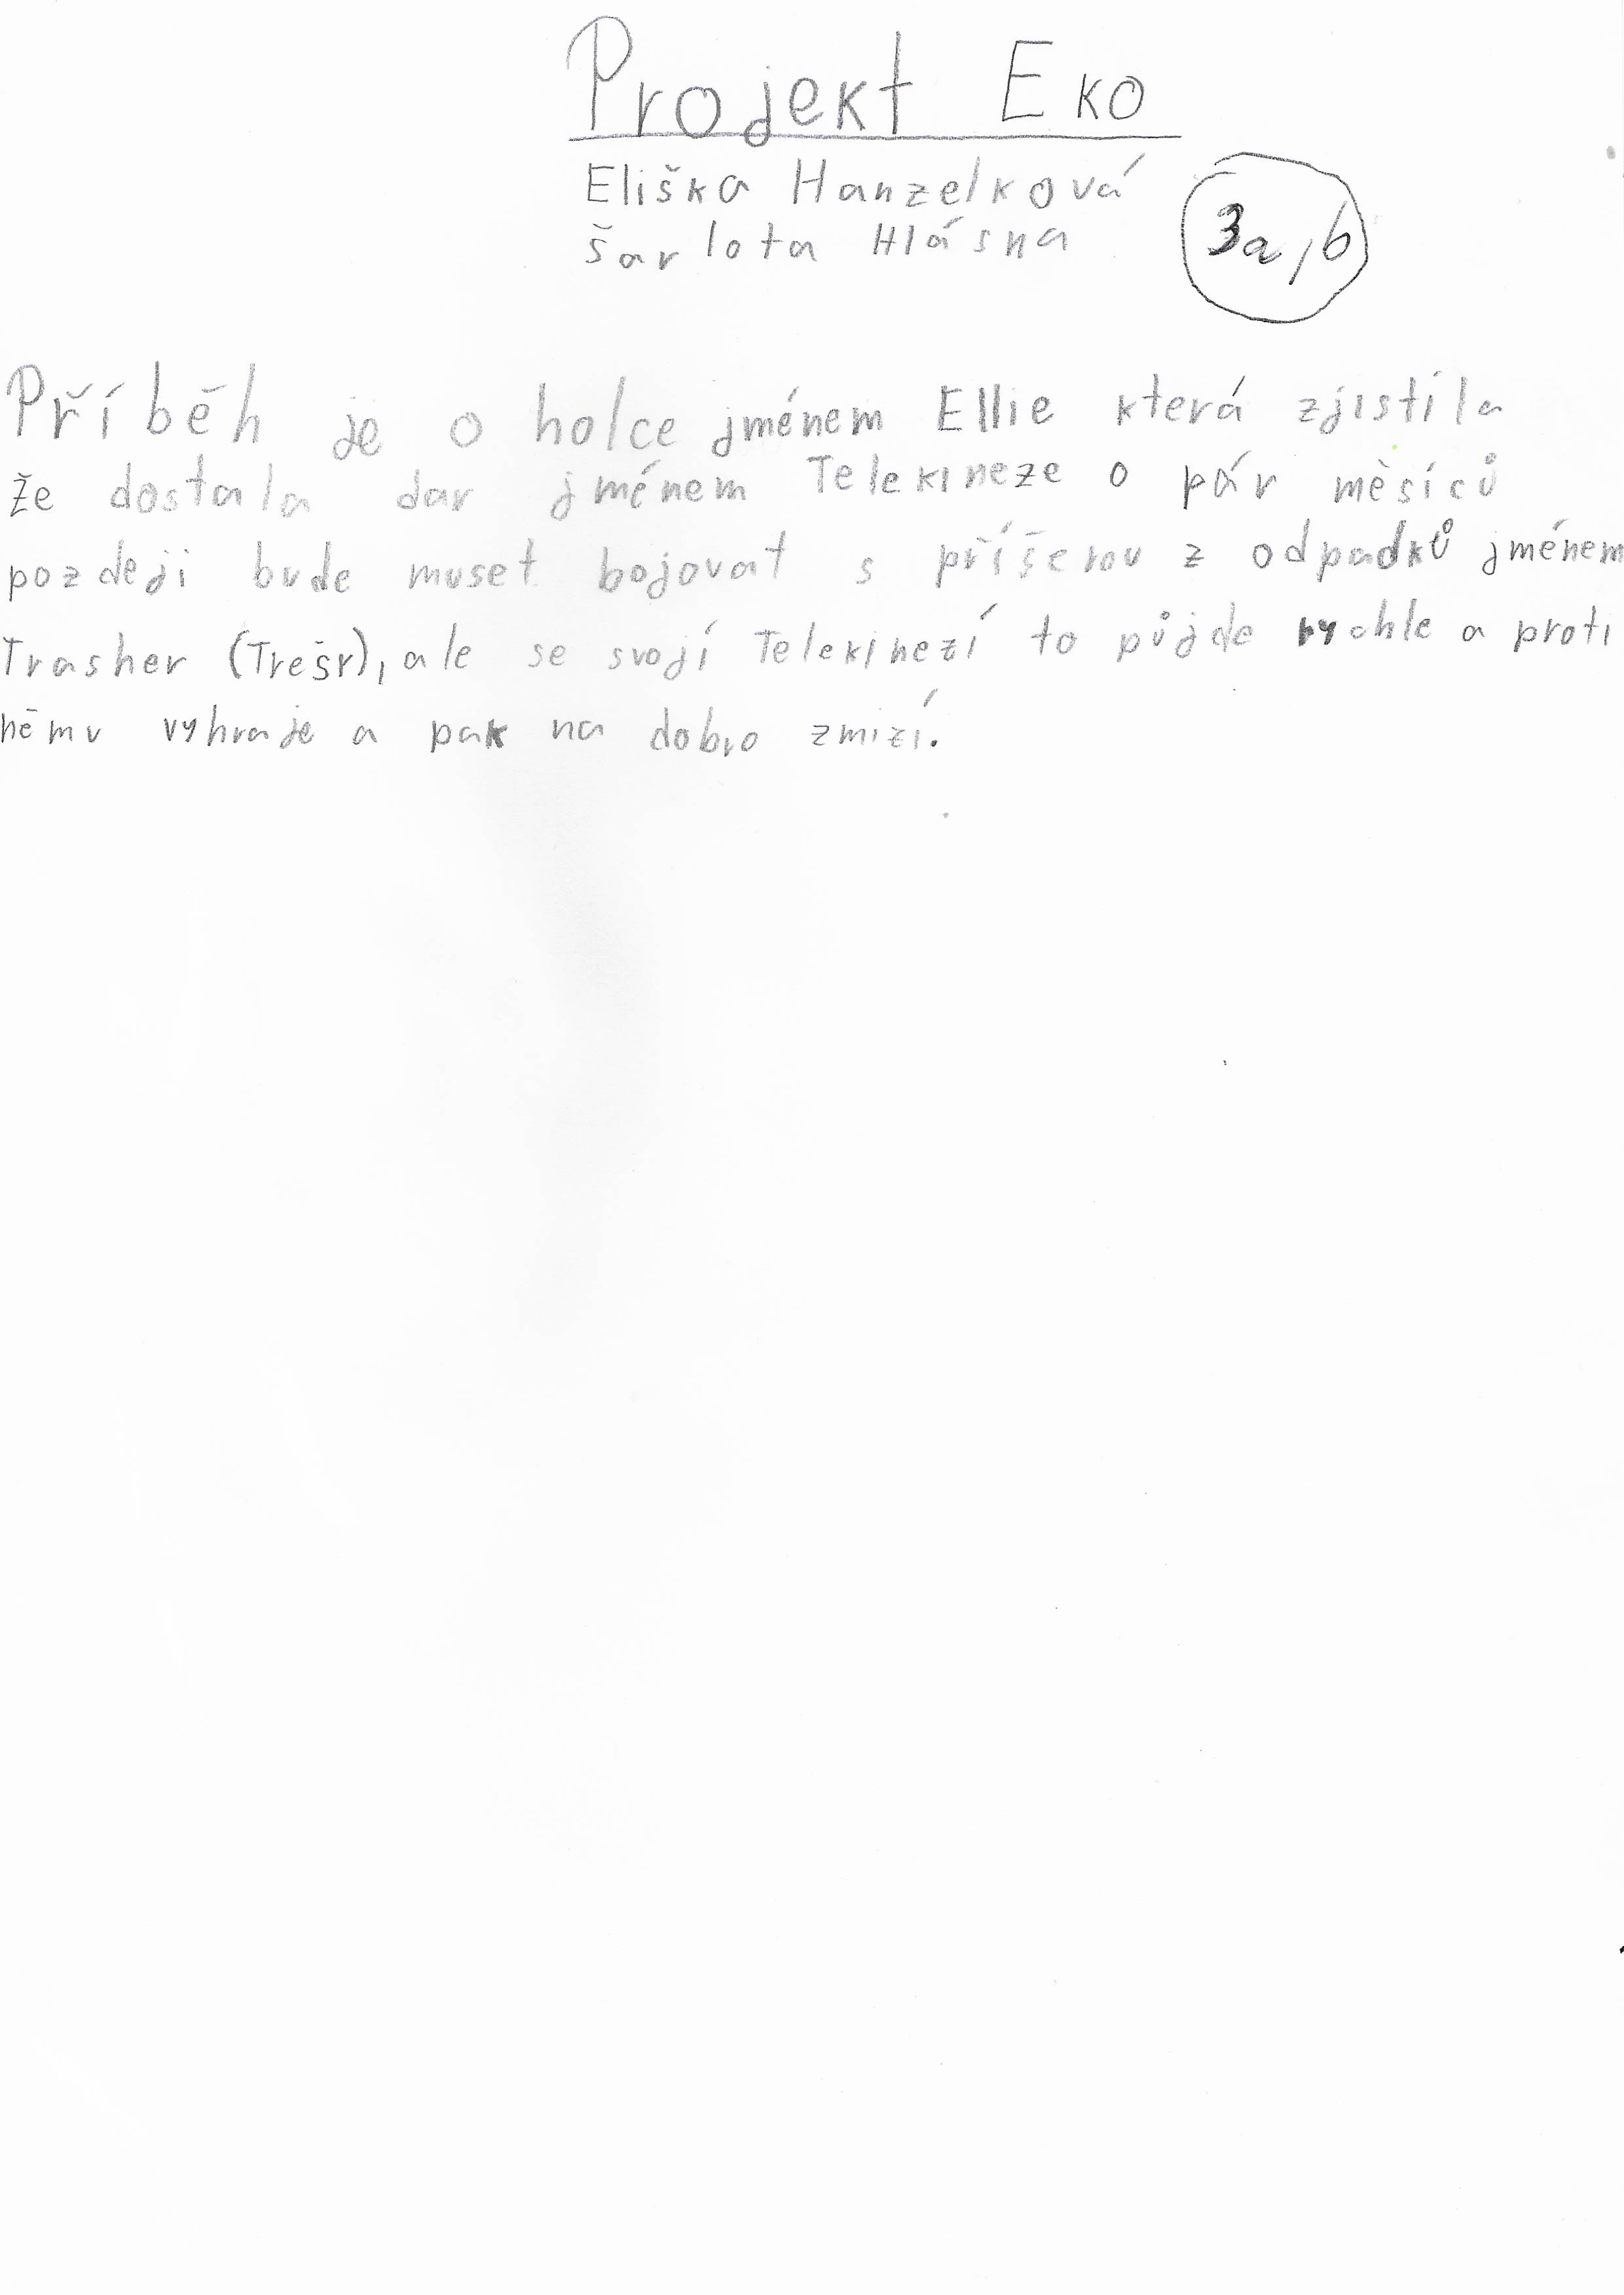 Projekt Eko
Eliška Hanzelková
Šarlota Hlásna
3a,b
Příběh je o holce jménem Ellie která zjistila
že dostala dar jménem Telekineze o pár měsíců
pozdeji bude muset bojovat s příšerou z odpadků jménem
Trasher (Trešr), ale se svojí Telekinezí to půjde rychle a proti
němu vyhraje a pak na dobro zmizí.